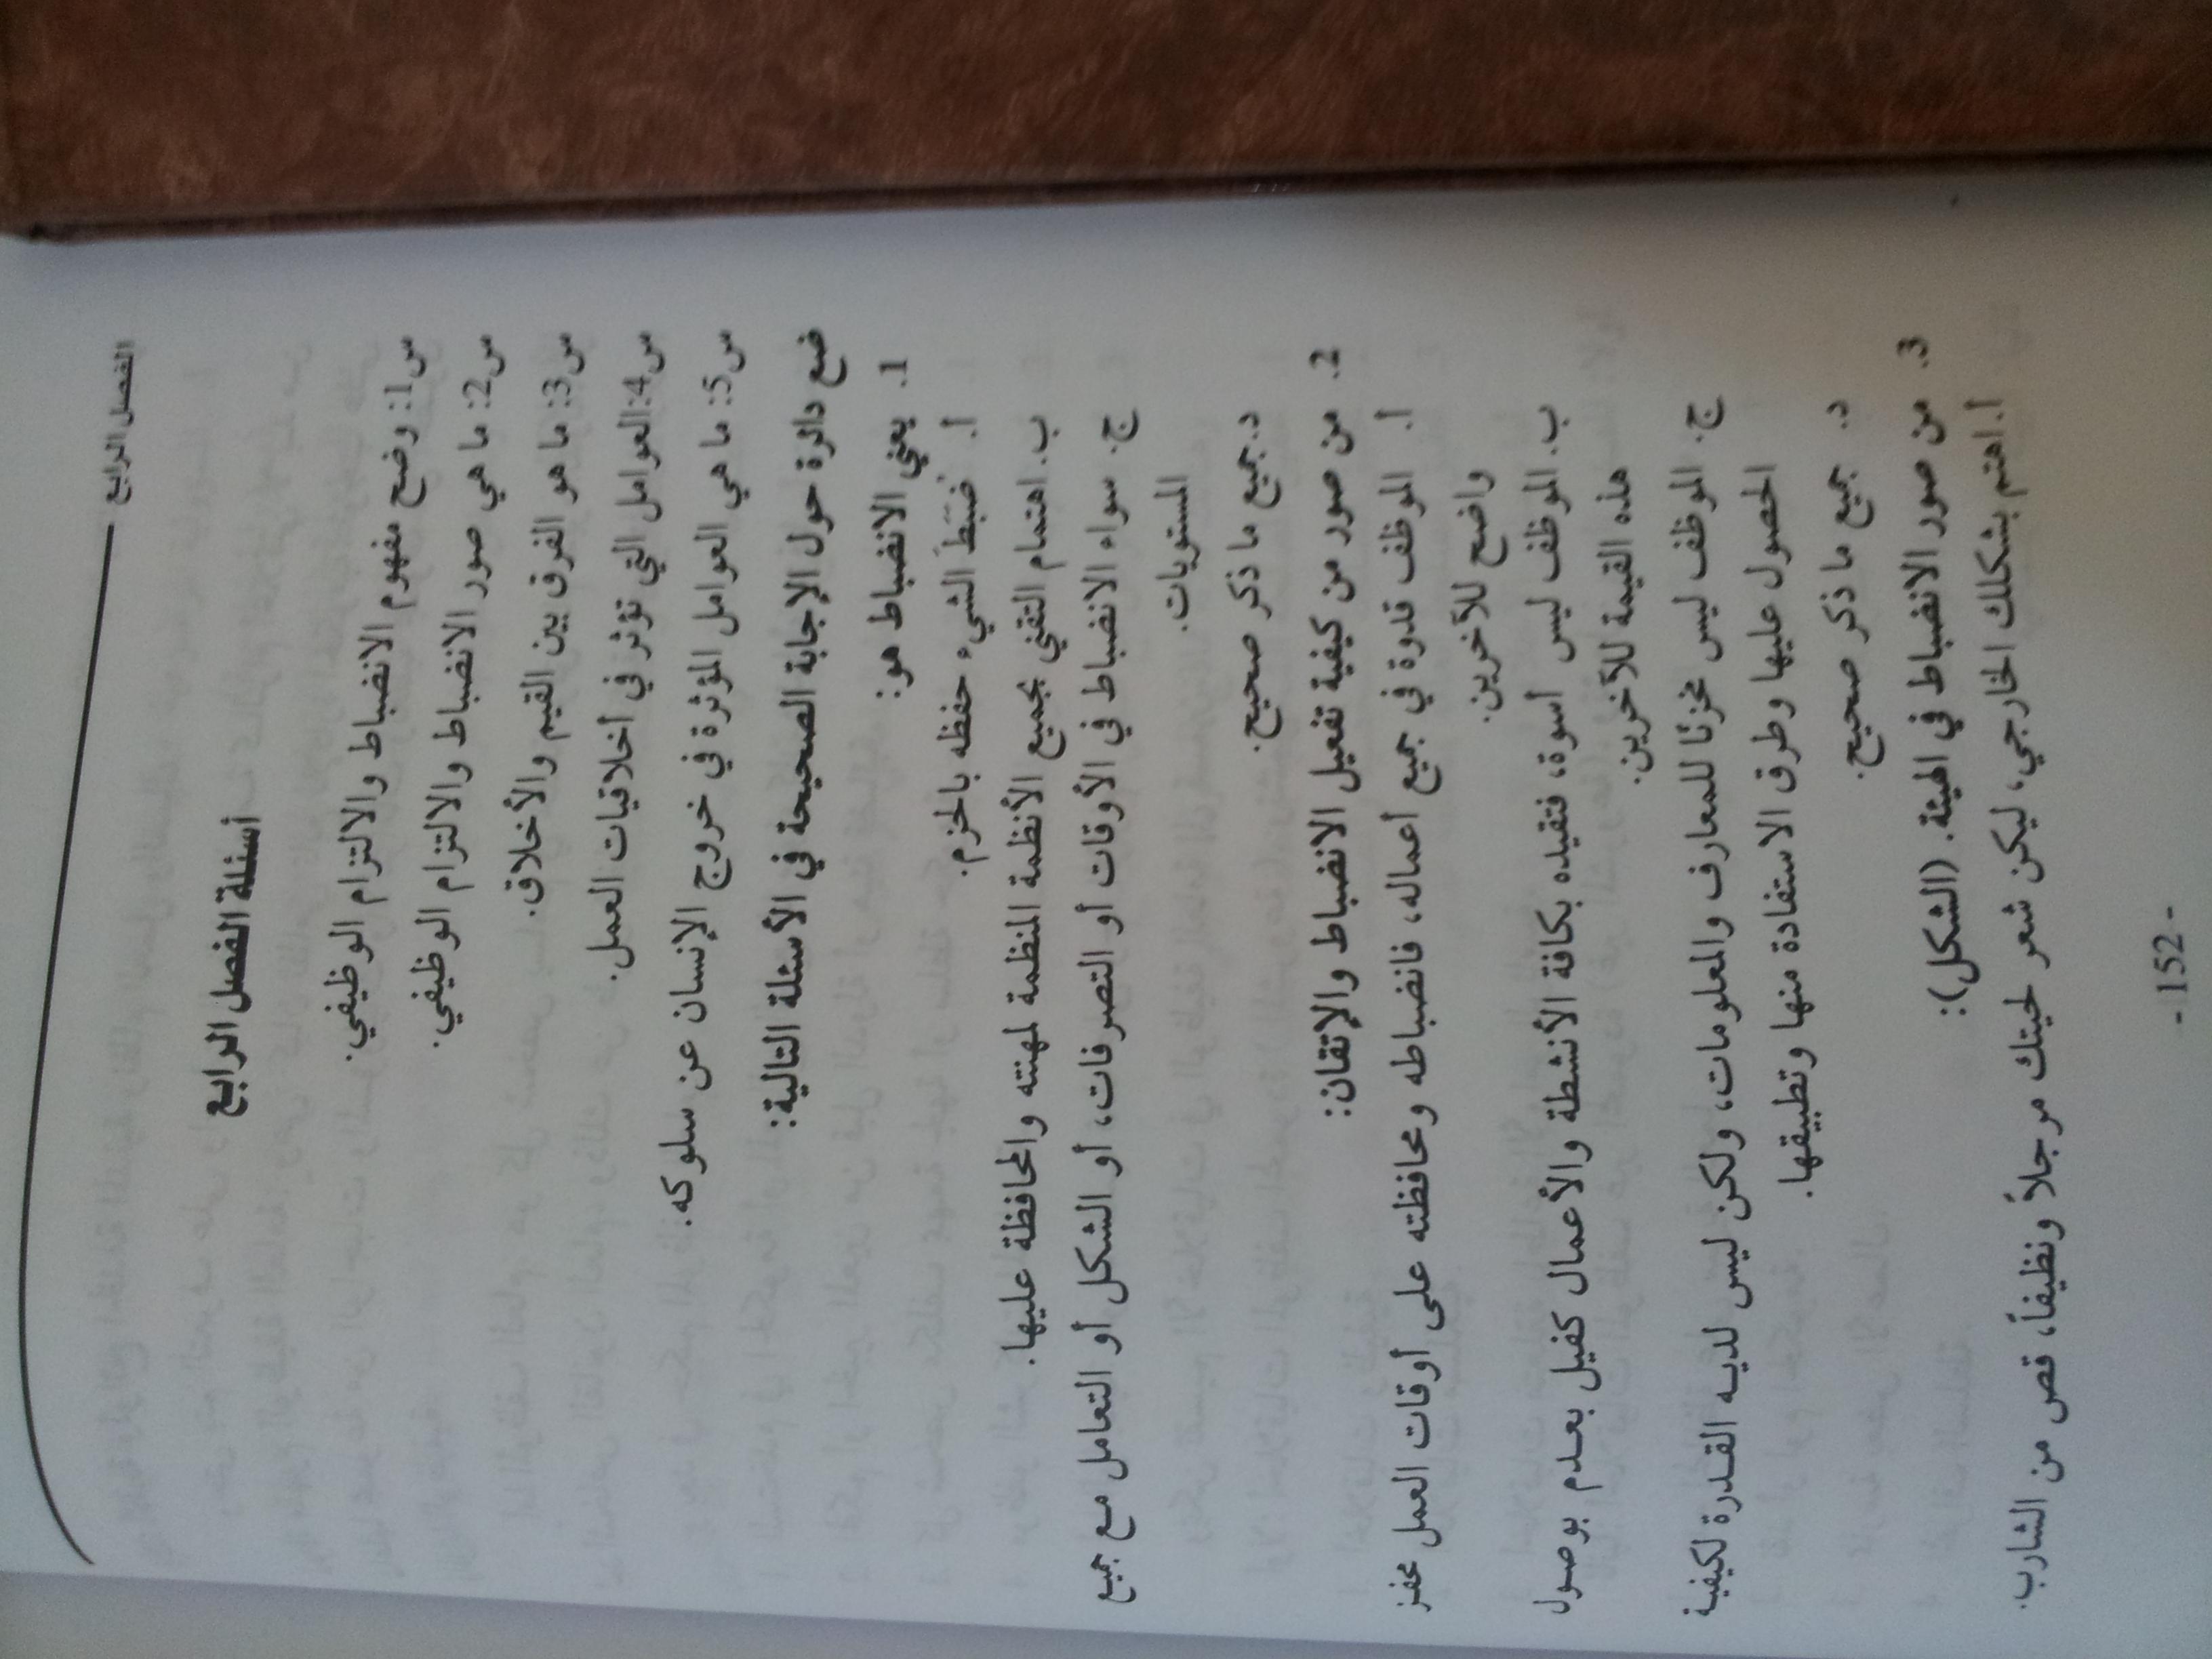 الفصل الرابع
أسئلة الفصل الرابع
س1: وضح مفهوم الانضباط والالتزام الوظيفي.
س2: ما هي صور الانضباط والالتزام الوظيفي.
س3: ما هو الفرق بين القيم والأخلاق.
س4:العوامل التي تؤثر في أخلاقيات العمل.
س5: ما هي العوامل المؤثرة في خروج الإنسان عن سلوكه.
ضع دائرة حول الإجابة الصحيحة في الأسئلة التالية:
1. يعني الانضباط هو:
أ. ضَبَطَ الشيء حفظه بالحزم.
ب. اهتمام التقني بجميع الأنظمة المنظمة لمهنته والمحافظة عليها.
ج. سواء الانضباط في الأوقات أو التصرفات، أو الشكل أو التعامل مع جميع
المستويات.
د. جميع ما ذكر صحيح.
2. من صور من كيفية تفعيل الانضباط والإتقان:
أ. الموظف قدوة في جميع أعماله، فانضباطه ومحافظته على أوقات العمل محفز
واضح للآخرين.
ب. الموظف ليس أسوة، فتقيده بكافة الأنشطة والأعمال كفيل بعدم بوصول
هذه القيمة للآخرين.
ج. الموظف ليس مخزنًا للمعارف والمعلومات، ولكن ليس لديه القدرة لكيفية
الحصول عليها وطرق الاستفادة منها وتطبيقها.
د. جميع ما ذكر صحيح.
3. من صور الانضباط في الهيئة. (الشكل):
أ. اهتم بشكلك الخارجي، ليكن شعر لحيتك مرجلاً ونظيفاً، قص من الشارب.
- 152 -